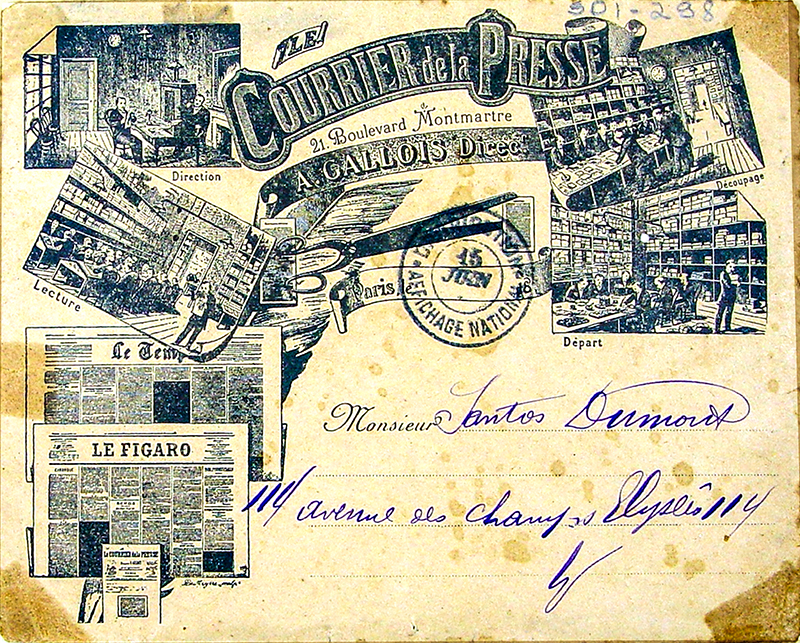 501-298
LE
COURRIER de la PRESSE
21. Boulevard Montmartre
A. GALLOIS Direct.
Direction
Découpage
Lecture
Départ
Paris le
15
JUIN
AFFICHAGE NATIONAL
Le Temps
LE FIGARO
LE COURRIER de la PRESSE
Monsieur Santos Dumont
114 avenue des Champs Elysées 114